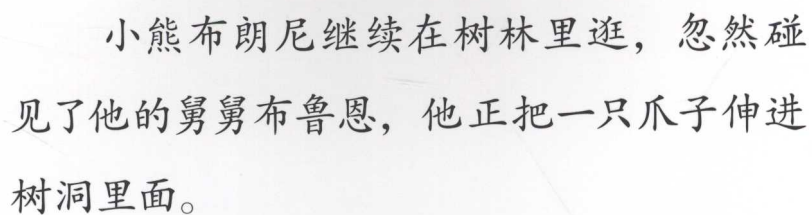 小熊布朗尼继续在树林里逛，忽然碰
见了他的舅舅布鲁恩，他正把一只爪子伸进
树洞里面。